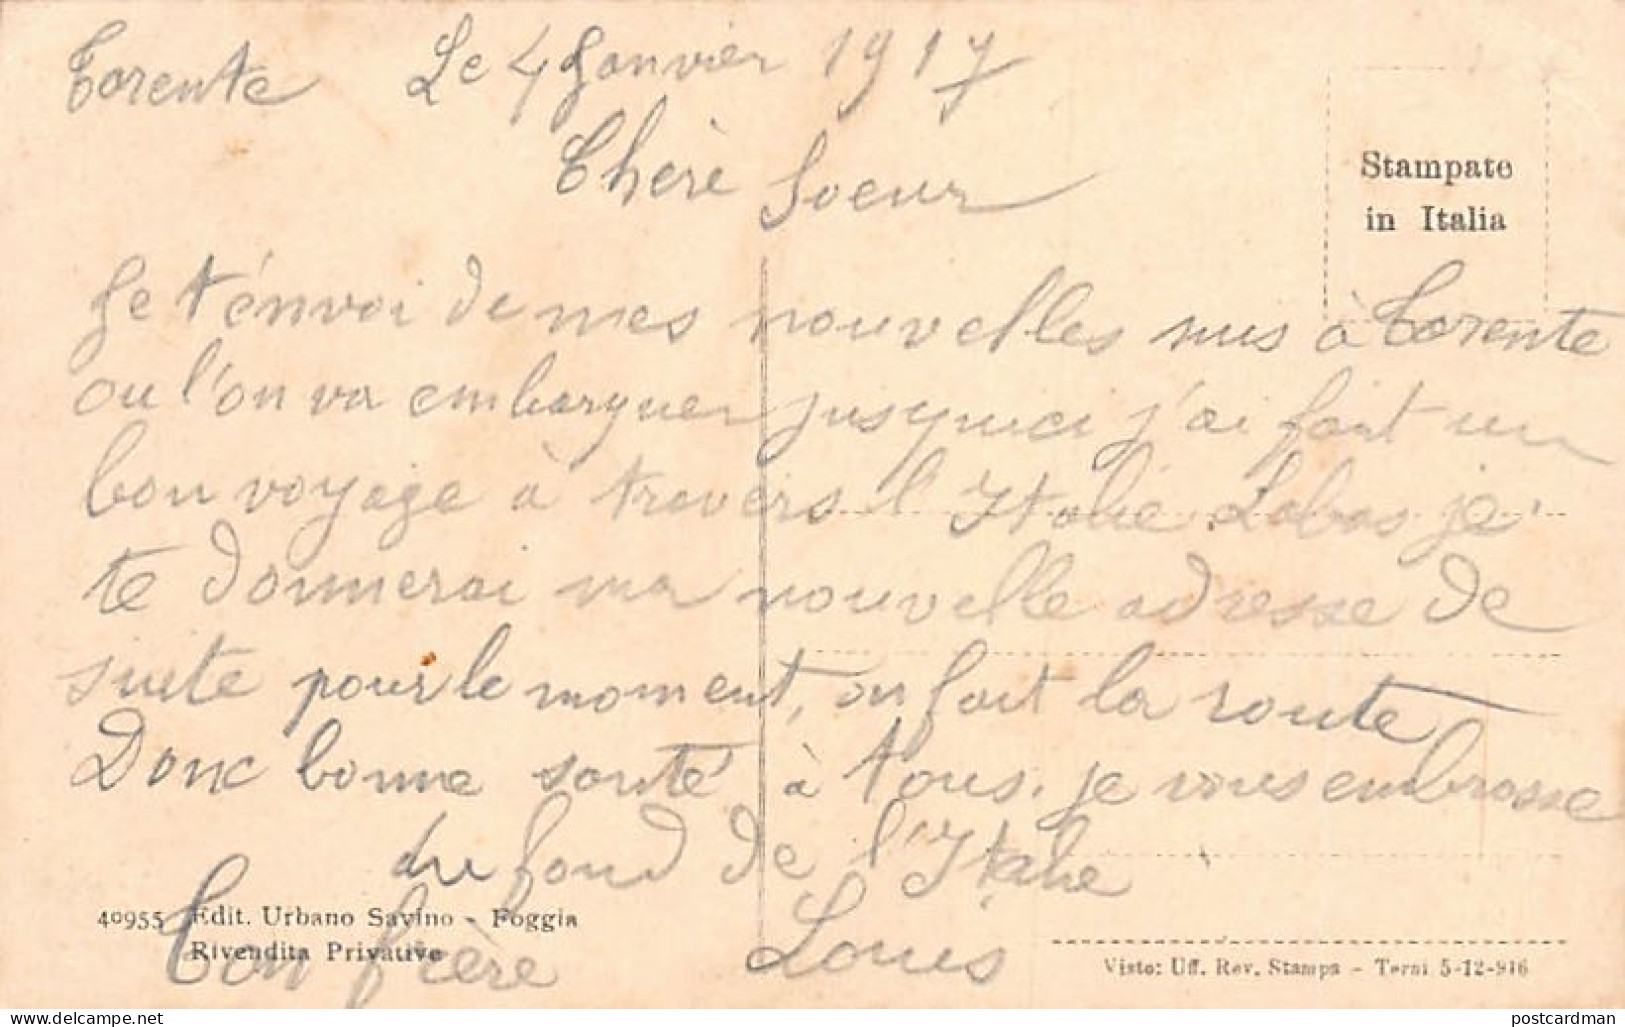 Torente Le 4 Janvier 1917
Chère Soeur
Stampato
in Italia
Je t'énvoi de mes nouvelles mus à Torente
ou l'on va embarquer jusquici j'ai fait un
bon voyage à travers l'Italie Labas je
te donnerai ma nouvelle adresse de
suite pour le moment, on fait la route
Donc bonne santé à tous. je vous embrasse
du fond de l'Italie
40955 Edit. Urbano Savino - Foggia
Rivendita Privative
Ton frère Louis
Visto: Uff. Rev. Stampa - Terni 5-12-916
delcampe.net
postcardman